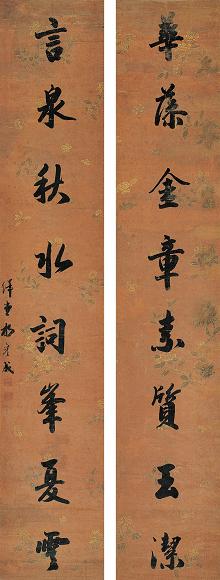 華藻金章素質玉潔
言泉秋水詞峯夏雲